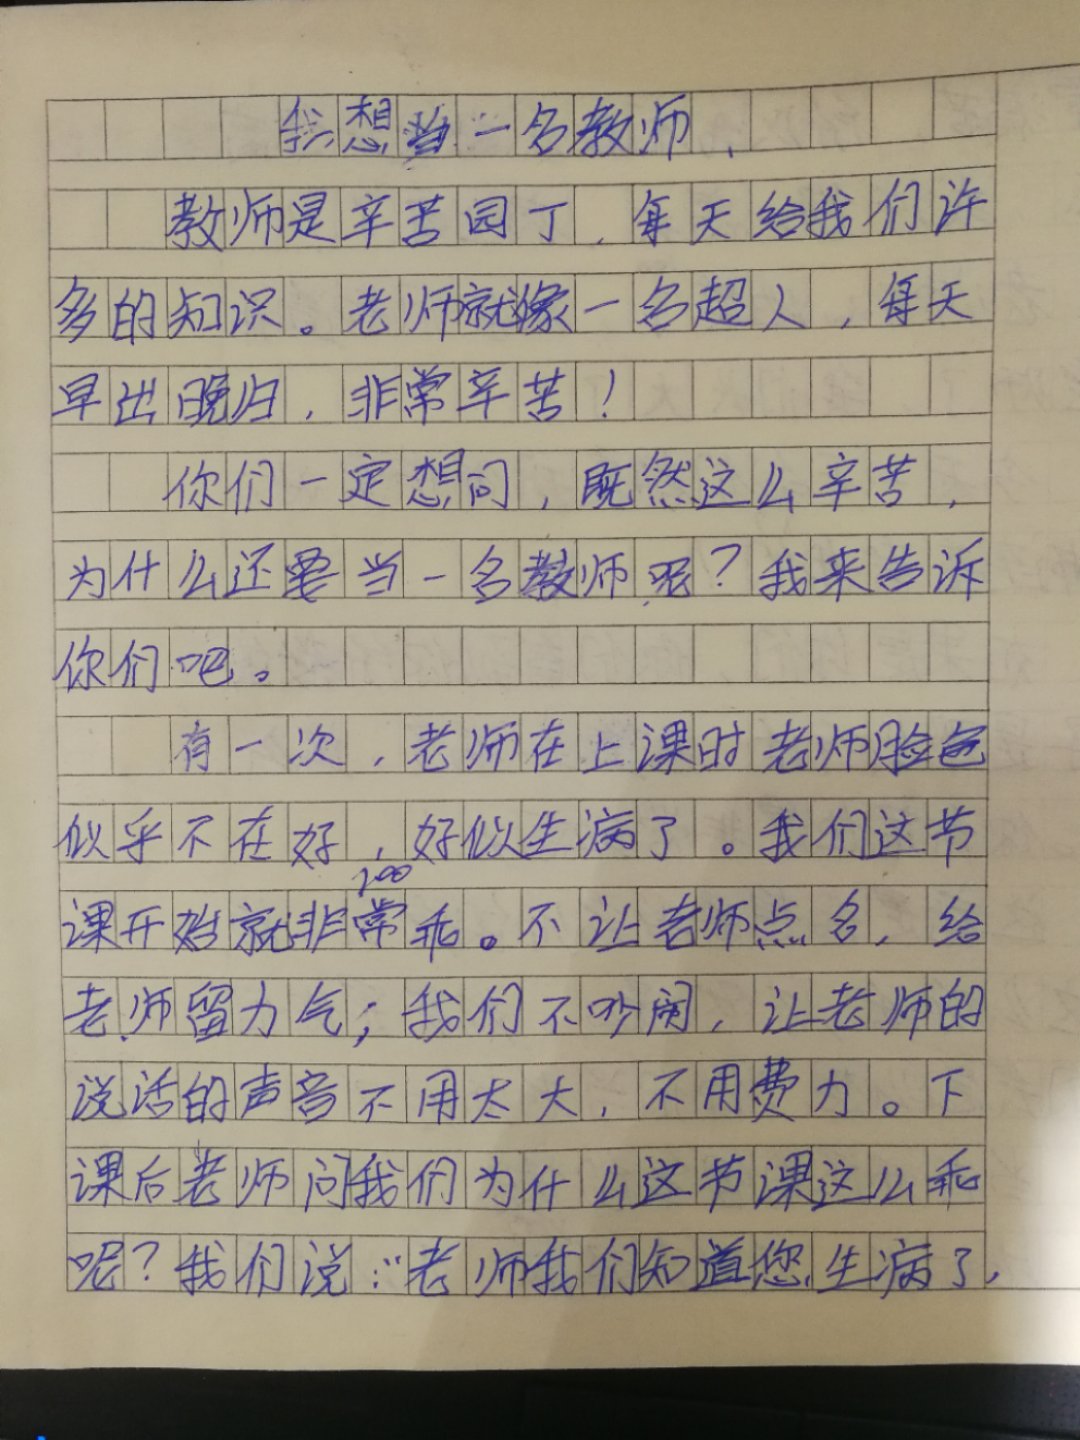 我想当一名教师
教师是辛苦园丁，每天给我们许
多的知识。老师就像一名超人，每天
早出晚归，非常辛苦！
你们一定想问，既然这么辛苦，
为什么还要当一名教师呢？我来告诉
你们吧。
有一次，老师在上课时老师脸色
似乎不在好，好似生病了。我们这节
200
课开始就非常乖。不让老师点名，给
老师留力气；我们不吵闹，让老师的
说话的声音不用太大，不用费力。下
课后老师问我们为什么这节课这么乖
呢？我们说：“老师我们知道您生病了，